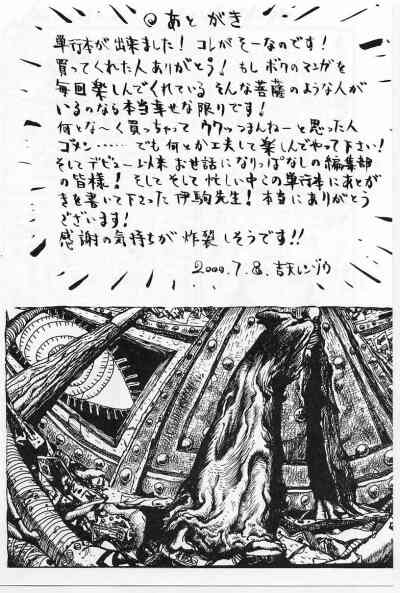 ◎あとがき
単行本が出来ました！コレがそーなのです！
買ってくれた人ありがとう！もしボクのマンガを
毎回楽しんでくれている そんな菩薩のような人が
いるのなら本当幸せな限りです！
何とな〜く買っちゃって ウウッつまんねーと思った人
ゴメン……でも何とか工夫して楽しんでやって下さい！
そしてデビュー以来お世話になりっぱなしの編集部
の皆様！そしてそして忙しい中この単行本にあとが
きを書いて下さった伊駒先生！本当にありがとう
ございます！
感謝の気持ちが炸裂しそうです!!
2000.7.8.